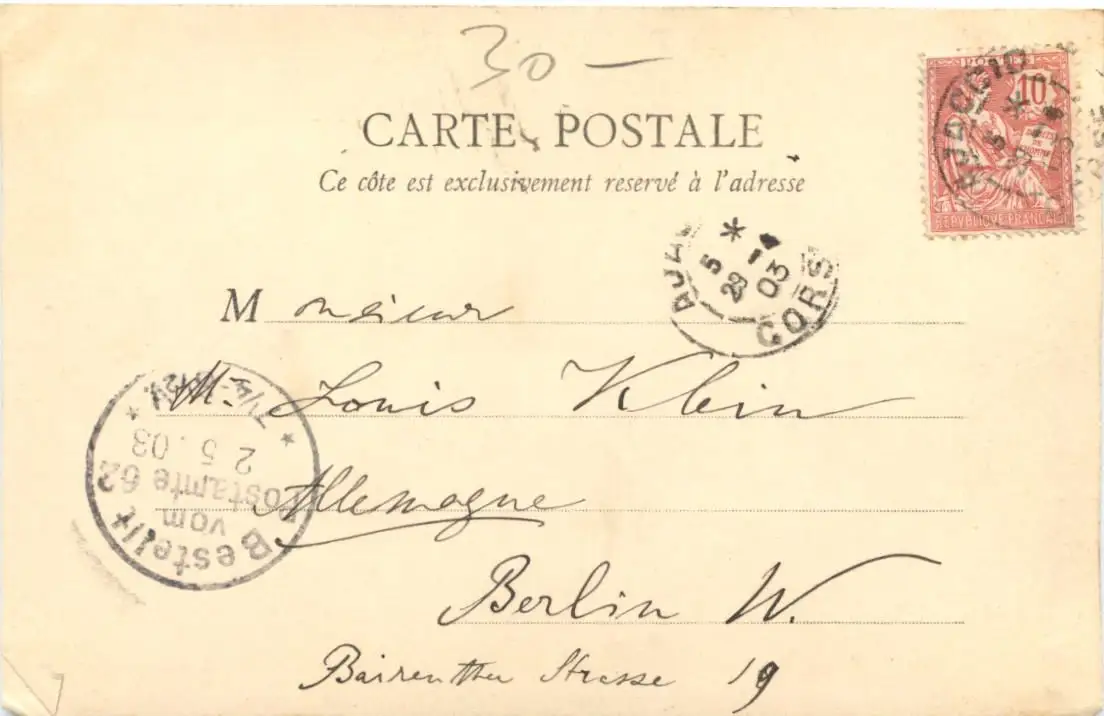 30 —
CARTE POSTALE
Ce côte est exclusivement reservé à l'adresse
POSTES
10
REPVBLIQVE FRANÇAISE
AJACCIO
5 *
AJAC
5 *
29 -4
03
CORSE
Monsieur
Mr. Louis Klein
Allemagne
Berlin W.
Baireuther Strasse 19
Bestellt
vom
Postamte 62
2 5. 03